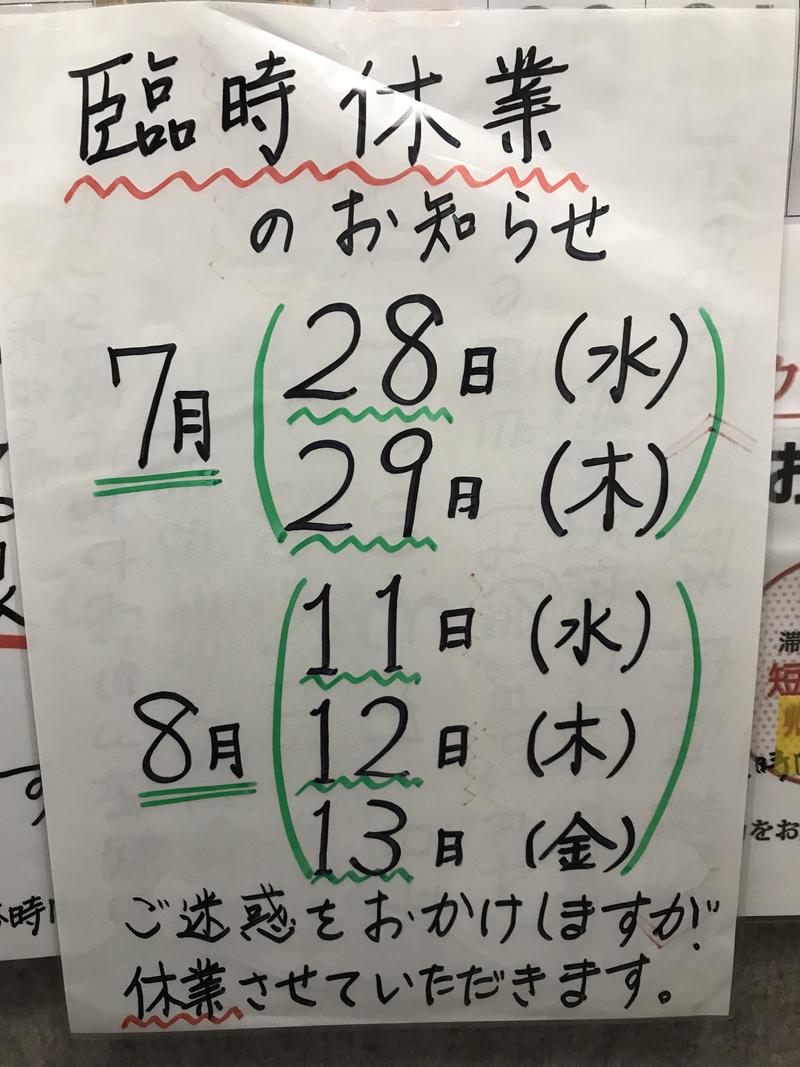 臨時休業
のお知らせ
7月
28日(水)
29日(木)
8月
11日(水)
12日(木)
13日(金)
ご迷惑をおかけしますが
休業させていただきます。